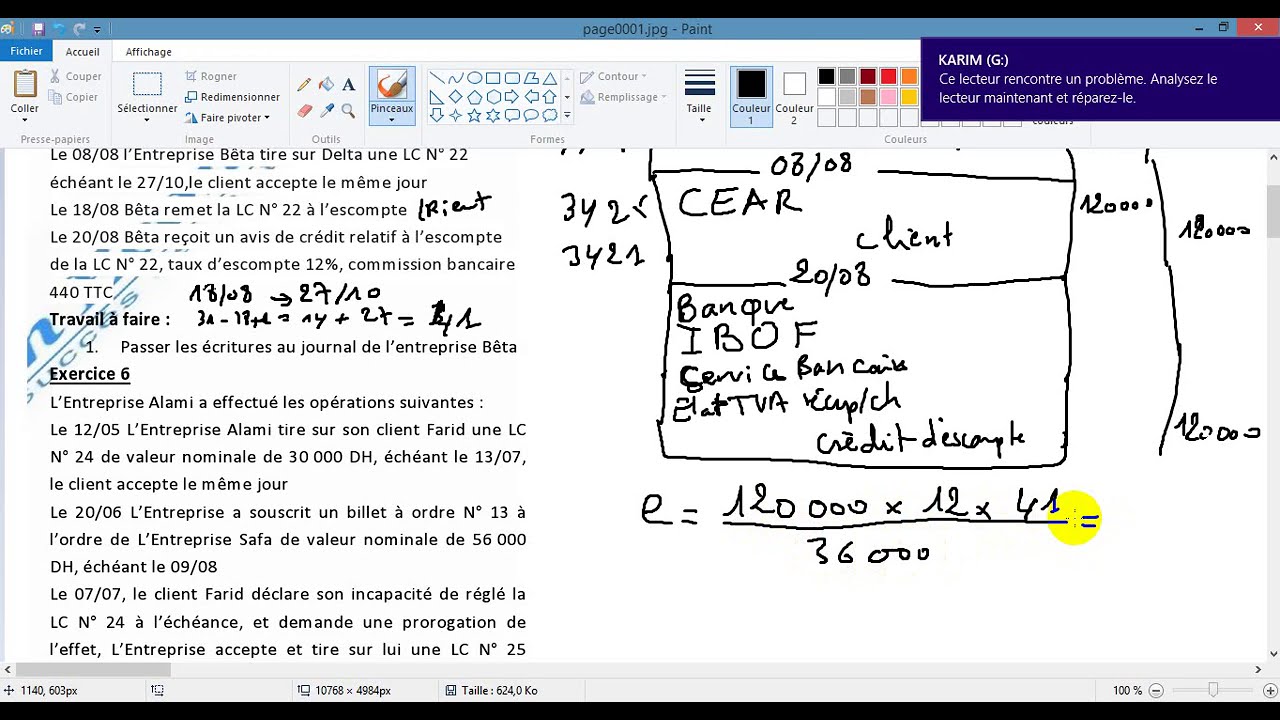 page0001.jpg - Paint
Fichier Accueil Affichage
KARIM (G:)
Ce lecteur rencontre un problème. Analysez le
lecteur maintenant et réparez-le.
Coller
Couper
Copier
Presse-papiers
Sélectionner
Rogner
Redimensionner
Faire pivoter
Image
Outils
Pinceaux
Formes
Contour
Remplissage
Taille
Couleur 1
Couleur 2
Couleurs
Le 08/08 l'Entreprise Bêta tire sur Delta une LC N° 22
échéant le 27/10,le client accepte le même jour
Le 18/08 Bêta remet la LC N° 22 à l'escompte
Le 20/08 Bêta reçoit un avis de crédit relatif à l'escompte
de la LC N° 22, taux d'escompte 12%, commission bancaire
440 TTC
18/08 → 27/10
Travail à faire :
= 14 + 27 = 41
1. Passer les écritures au journal de l'entreprise Bêta
Exercice 6
L'Entreprise Alami a effectué les opérations suivantes :
Le 12/05 L'Entreprise Alami tire sur son client Farid une LC
N° 24 de valeur nominale de 30 000 DH, échéant le 13/07,
le client accepte le même jour
Le 20/06 L'Entreprise a souscrit un billet à ordre N° 13 à
l'ordre de L'Entreprise Safa de valeur nominale de 56 000
DH, échéant le 09/08
Le 07/07, le client Farid déclare son incapacité de réglé la
LC N° 24 à l'échéance, et demande une prorogation de
l'effet, L'Entreprise accepte et tire sur lui une LC N° 25
08/08
3425 CEAR 120000
3421 client 120000
20/08
Banque
IBOF
Service Bancaire
Etat TVA récup/ch
crédit d'escompte 120000
e = 120 000 x 12 x 41 =
36 000
1140, 603px
10768 × 4984px
Taille : 624,0 Ko
100 %